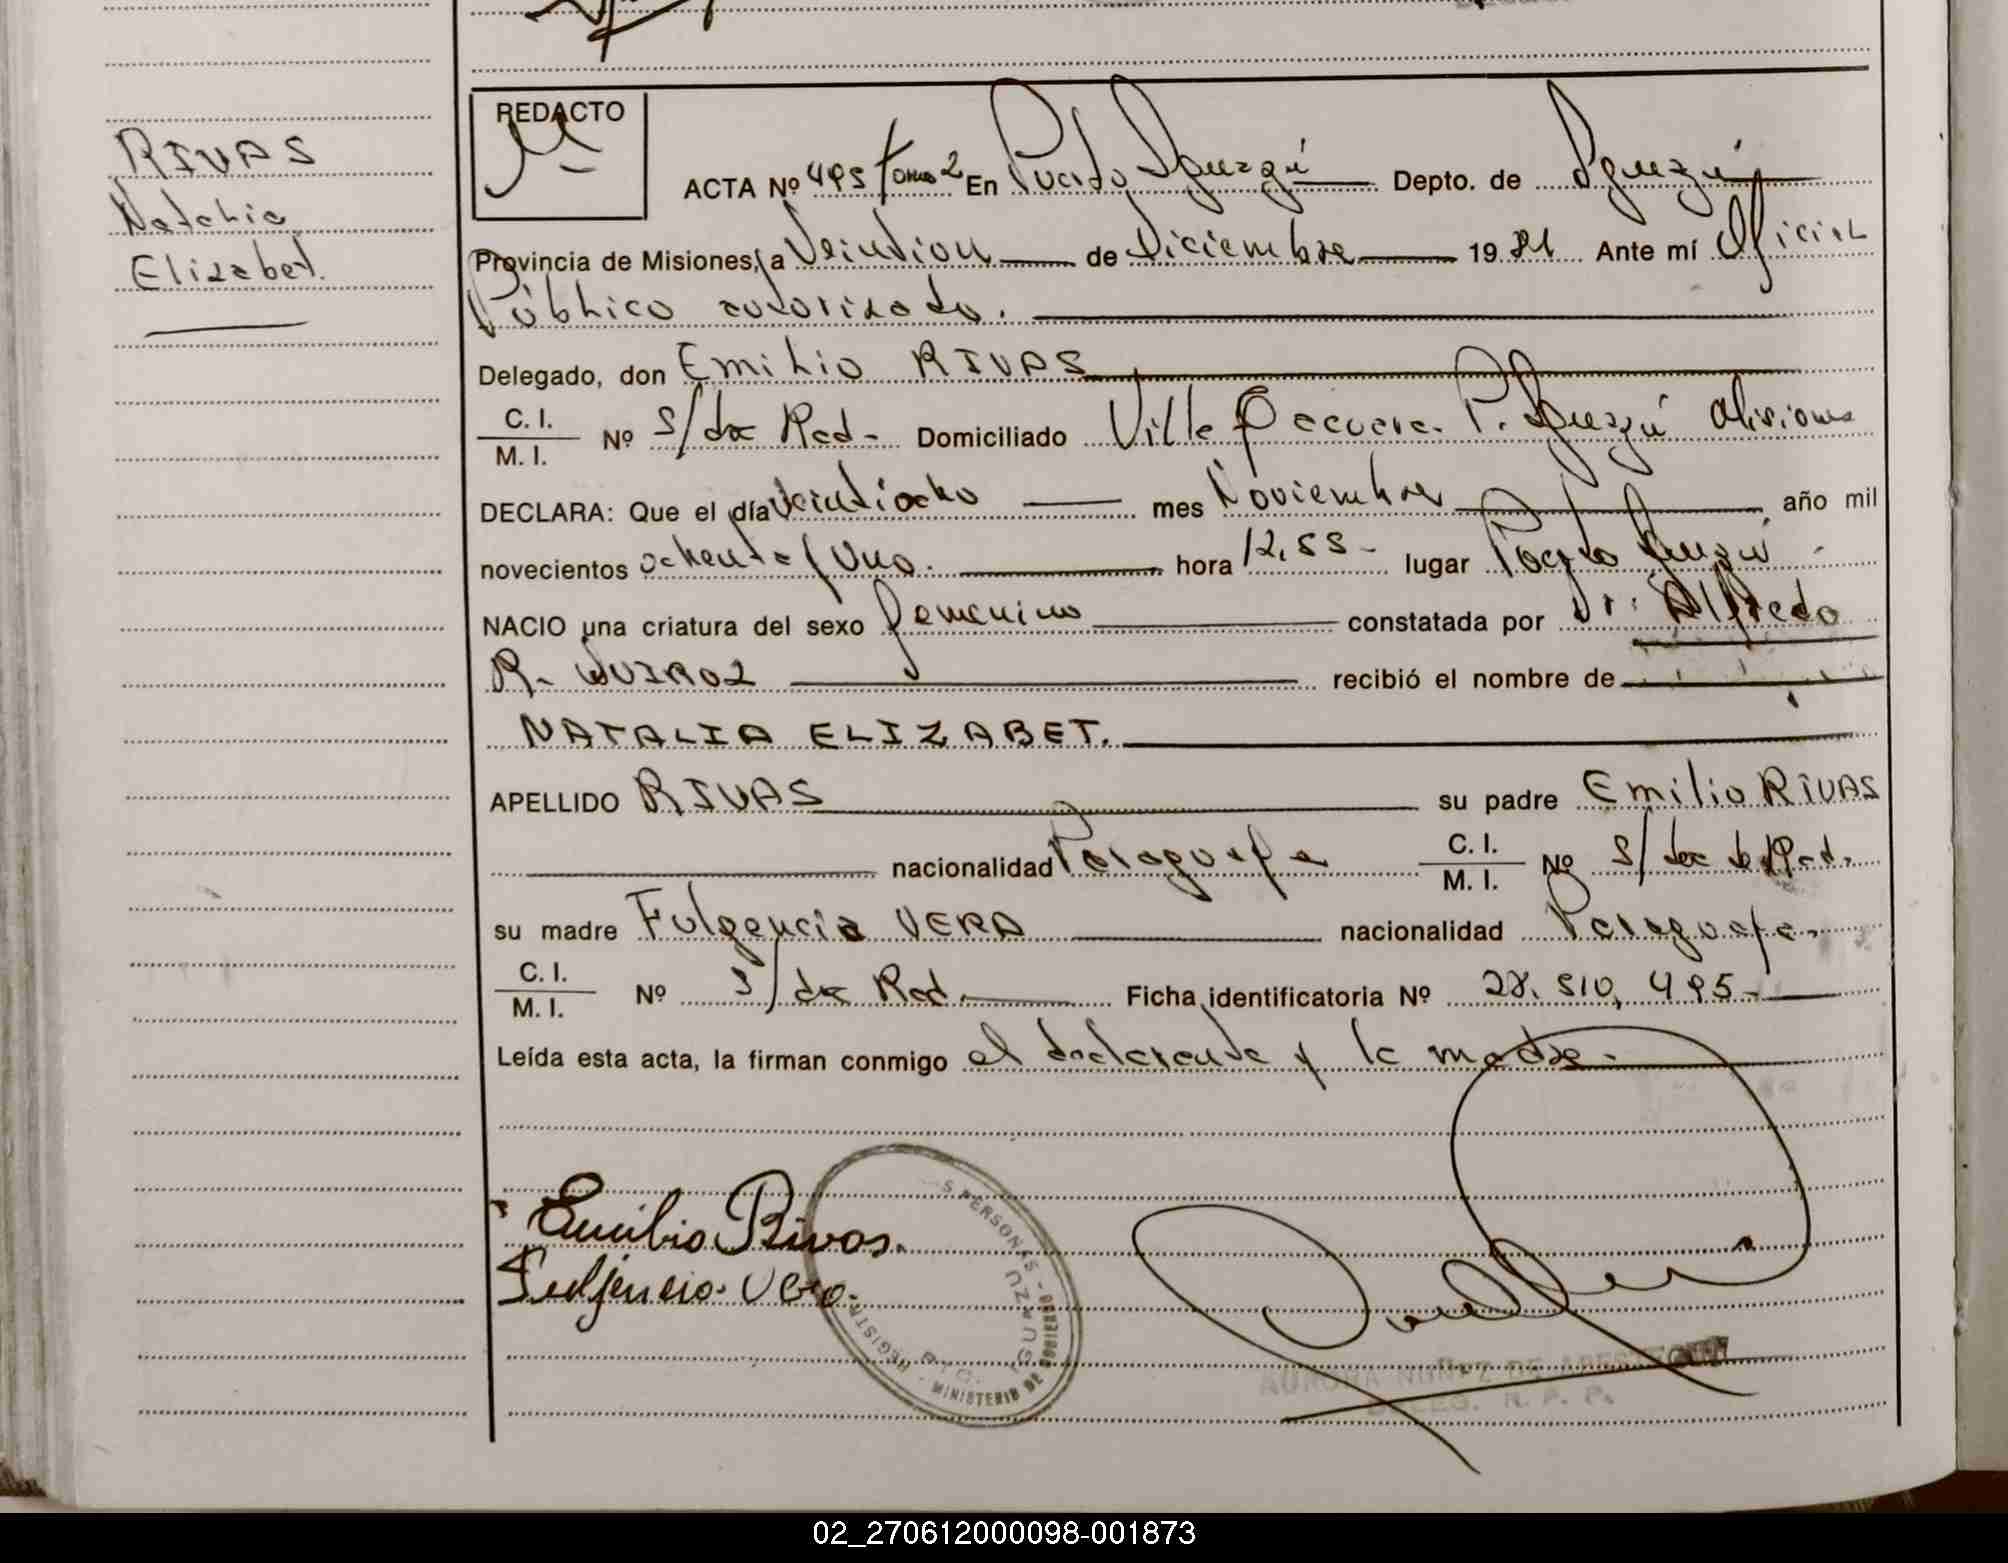 RIVAS
Natalia
Elizabet.
REDACTO
ACTA Nº 495 Tomo 2 En Puerto Iguazú Depto. de Iguazú
Provincia de Misiones, a Veintiun de Diciembre 1981 Ante mí Oficial
Público autorizado.
Delegado, don Emilio RIVAS
C. I.
M. I. Nº S/doc Rad. Domiciliado Villa P. Iguazú Misiones
DECLARA: Que el día Veintiocho mes Noviembre año mil
novecientos ochenta y Uno. hora 12,55 lugar Pocito Iguazú
NACIO una criatura del sexo femenino constatada por Dr. Alfredo
R. QUIROZ recibió el nombre de
NATALIA ELIZABET.
APELLIDO RIVAS su padre Emilio RIVAS
nacionalidad Paraguaya C. I.
M. I. Nº S/doc de Rad.
su madre Fulgencia VERA nacionalidad Paraguaya.
C. I.
M. I. Nº S/doc Rad. Ficha identificatoria Nº 28.510,495-
Leída esta acta, la firman conmigo el declarante y la madre.
Emilio Rivas.
Fuljencia Vera.
S PERSONAS - MINISTERIO DE GOBIERNO - REGISTR
IGUAZU
AURORA NUÑEZ DE
DELEG. R. P. P.
02_270612000098-001873